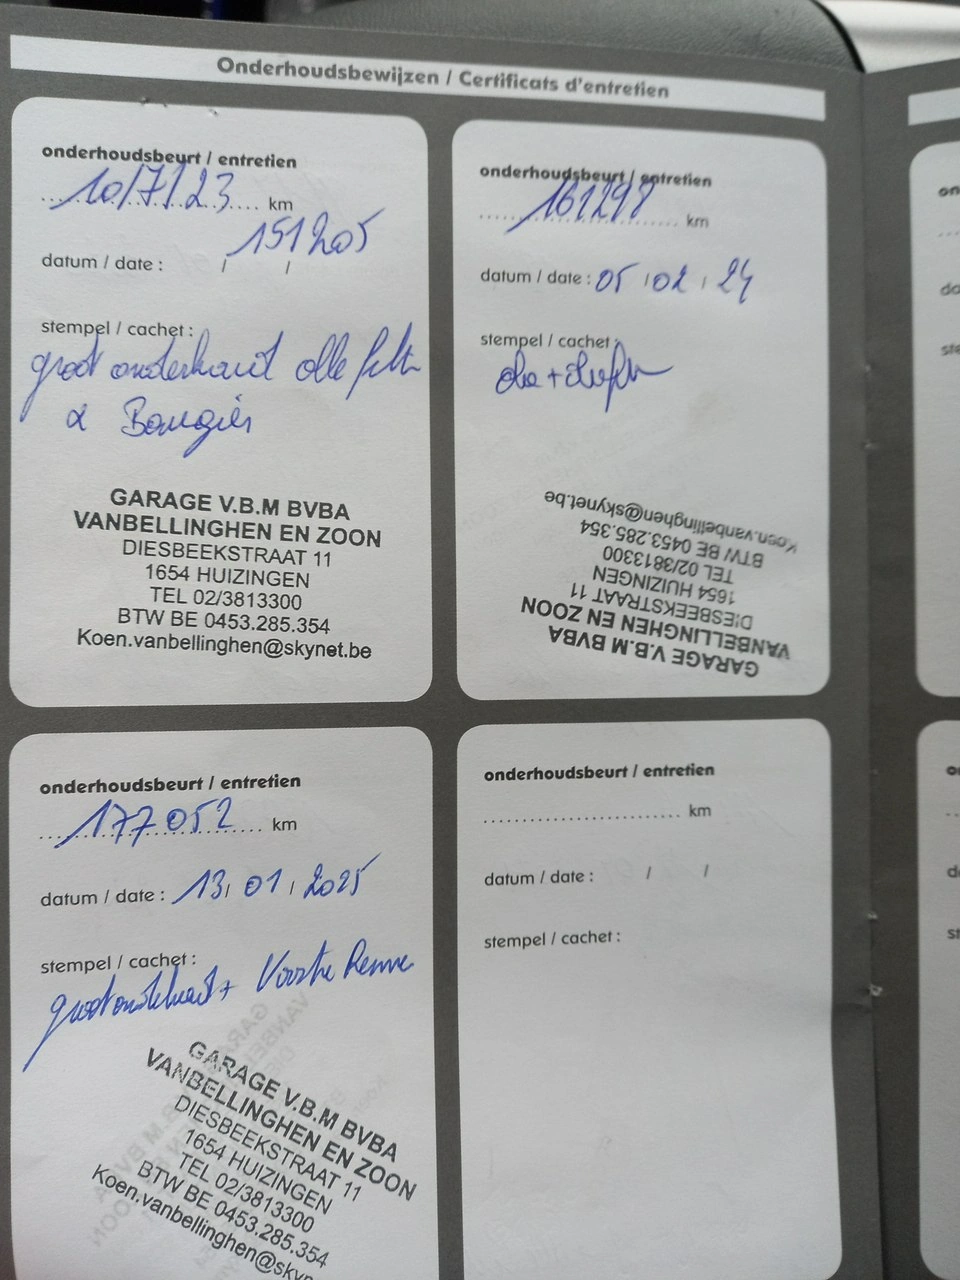 Onderhoudsbewijzen / Certificats d'entretien
onderhoudsbeurt / entretien
10/7/23 km
151205
datum / date : / /
stempel / cachet :
groot onderhoud olle filt
& Bougies
GARAGE V.B.M BVBA
VANBELLINGHEN EN ZOON
DIESBEEKSTRAAT 11
1654 HUIZINGEN
TEL 02/3813300
BTW BE 0453.285.354
Koen.vanbellinghen@skynet.be
onderhoudsbeurt / entretien
161298 km
datum / date : 05 / 02 / 24
stempel / cachet :
GARAGE V.B.M BVBA
VANBELLINGHEN EN ZOON
DIESBEEKSTRAAT 11
1654 HUIZINGEN
TEL 02/3813300
BTW BE 0453.285.354
Koen.vanbellinghen@skynet.be
onderhoudsbeurt / entretien
177052 km
datum / date : 13 / 01 / 2025
stempel / cachet :
groot onderhoud +
GARAGE V.B.M BVBA
VANBELLINGHEN EN ZOON
DIESBEEKSTRAAT 11
1654 HUIZINGEN
TEL 02/3813300
BTW BE 0453.285.354
Koen.vanbellinghen@skyn
onderhoudsbeurt / entretien
km
datum / date : / /
stempel / cachet :